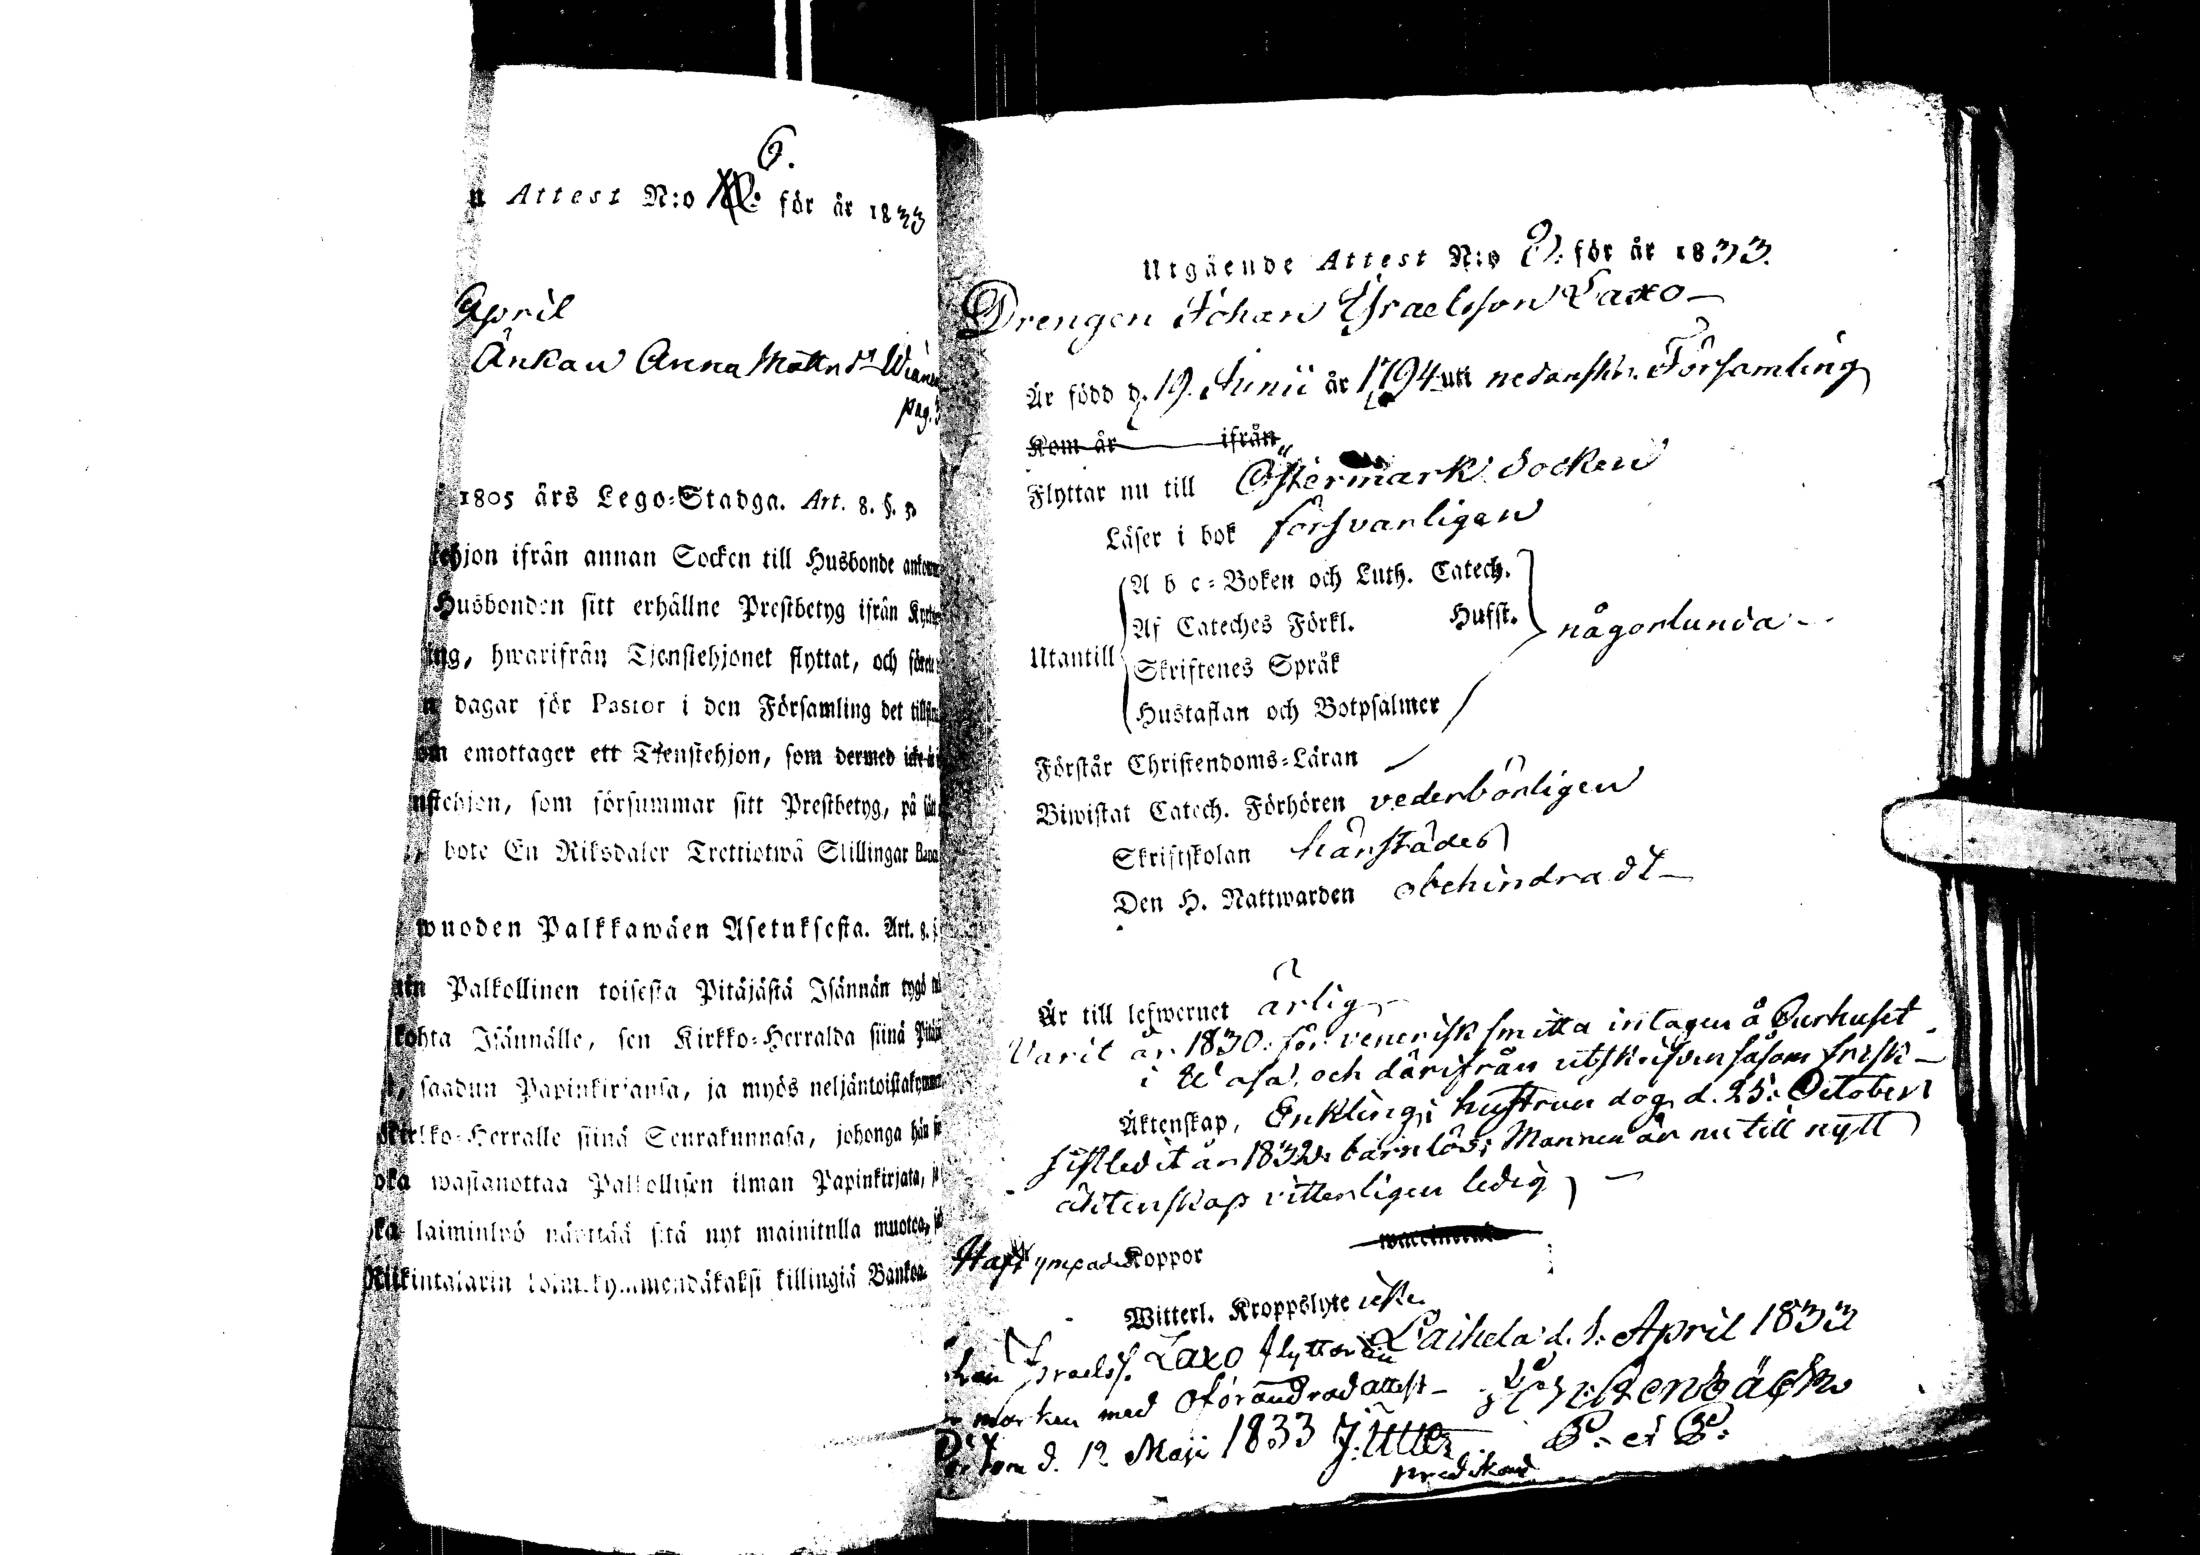 6.
n Attest N:o för år 1833
April
Änkan Anna Mattsdr
pag.
1805 års Lego-Stadga. Art. 8. §. 3.
tehjon ifrån annan Socken till Husbonde
Husbonden sitt erhållne Prestbetyg ifrån
ing, hwarifrån Tjenstehjonet flyttat, och
n dagar för Pastor i den Församling det
om emottager ett Tjenstehjon, som dermed icke
nstehjon, som försummar sitt Prestbetyg, på
bote En Riksdaler Trettiotwå Skillingar
wuoden Palkkawäen Asetuksesta. Art. 8.
uin Palkollinen toisesta Pitäjästä Isännän tygö
kohta Isännälle, sen Kirkko-Herralda siinä
saadun Papinkirjansa, ja myös
Kirkko-Herralle siinä Seurakunnasa, johonga hän
oka wastanottaa Palkollisen ilman Papinkirjata,
oka laiminlyö näyttää sitä nyt mainitulla muotoa,
Riikintalarin kolmekymmendäkaksi killingiä Bankoa
Utgående Attest N:o 9. för år 1833.
Drengen Johan Israelsson Laxo
Är född d. 19. Junii år 1794 uti nedanskr. Församling
Kom år ifrån
Flyttar nu till Östermark Socken
Läser i bok försvarligen
A b c-Boken och Luth. Catech.
Af Cateches Förkl. Hufst.
någorlunda
Utantill
Skriftenes Språk
Hustaflan och Botpsalmer
Förstår Christendoms-Läran
Biwistat Catech. Förhören vederbörligen
Skriftskolan härstädes
Den H. Nattwarden obehindradt
Är till lefwernet ärlig
Varit år 1830 för venerisk smitta intagen å Curhuset
i Wasa, och därifrån utskrifven såsom frisk
Äktenskap, Enkling; hustrun dog d. 25. October
sistledit år 1832. barnlös; Mannen är nu till nytt
äktenskap vitterligen ledig
Haft ympade Koppor
Witterl. Kroppslyte icke
Laihela d. 1. April 1833
Israelss. Laxo flyttar
marken med oförändrad attest
d. 12 Maji 1833
P. et P.
predikant